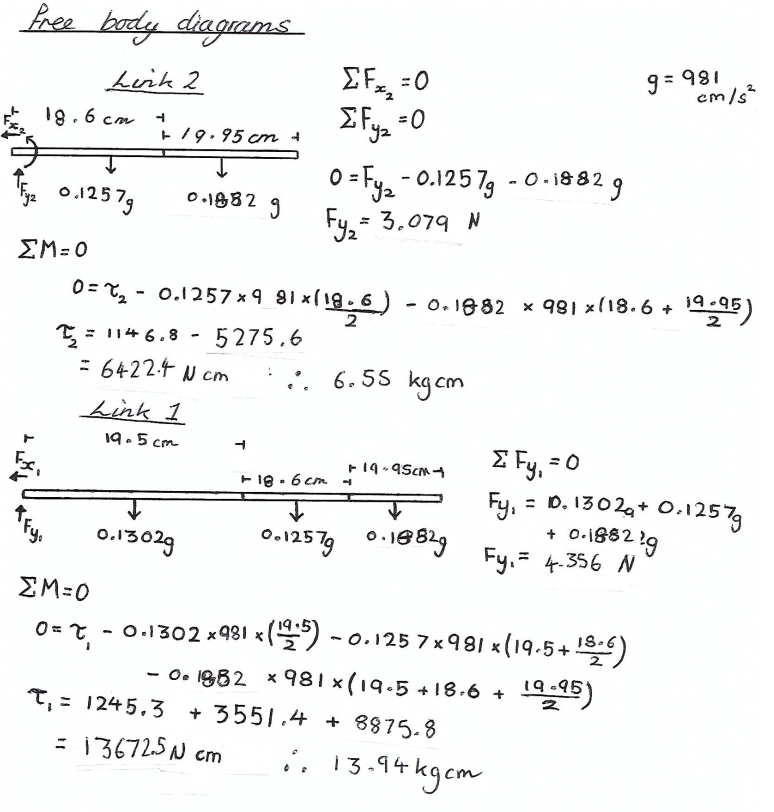 Free body diagrams
Link 2
ΣFx₂ = 0
g = 981 cm/s²
ΣFy₂ = 0
Fx₂
18.6 cm
19.95 cm
Fy₂
0.1257g
0.1882 g
0 = Fy₂ - 0.1257g - 0.1882 g
Fy₂ = 3.079 N
ΣM=0
0 = τ₂ - 0.1257 × 981 × (18.6/2) - 0.1882 × 981 × (18.6 + 19.95/2)
τ₂ = 1146.8 - 5275.6
= 6422.4 N cm ∴ 6.55 kgcm
Link 1
19.5 cm
Fx₁
18.6 cm
19.95cm
Fy₁
0.1302g
0.1257g
0.1882g
ΣFy₁ = 0
Fy₁ = 0.1302g + 0.1257g
+ 0.1882g
Fy₁ = 4.356 N
ΣM=0
0 = τ₁ - 0.1302 × 981 × (19.5/2) - 0.1257 × 981 × (19.5 + 18.6/2)
- 0.1882 × 981 × (19.5 + 18.6 + 19.95/2)
τ₁ = 1245.3 + 3551.4 + 8875.8
= 13672.5 N cm ∴ 13.94 kgcm